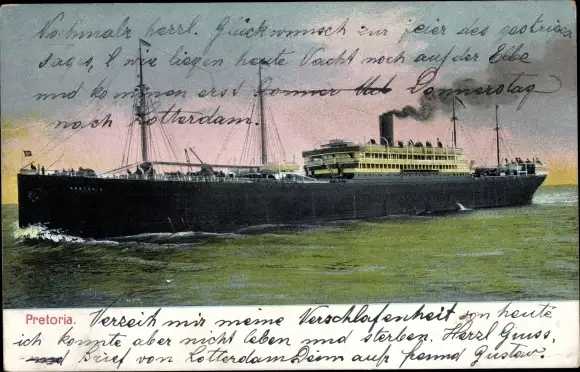 Nochmalr herzl. Glückwunsch zur feier des gestrigen
Tages, wir liegen heute Nacht noch auf der Elbe
und kommen erst Donnerstag
nach Rotterdam.
PRETORIA
Pretoria. Verzeih mir meine Verschlafenheit von heute
ich konnte aber nicht leben und sterben. Herzl Gruss,
und Brief von Rotterdam Dein auf freund Gustav.